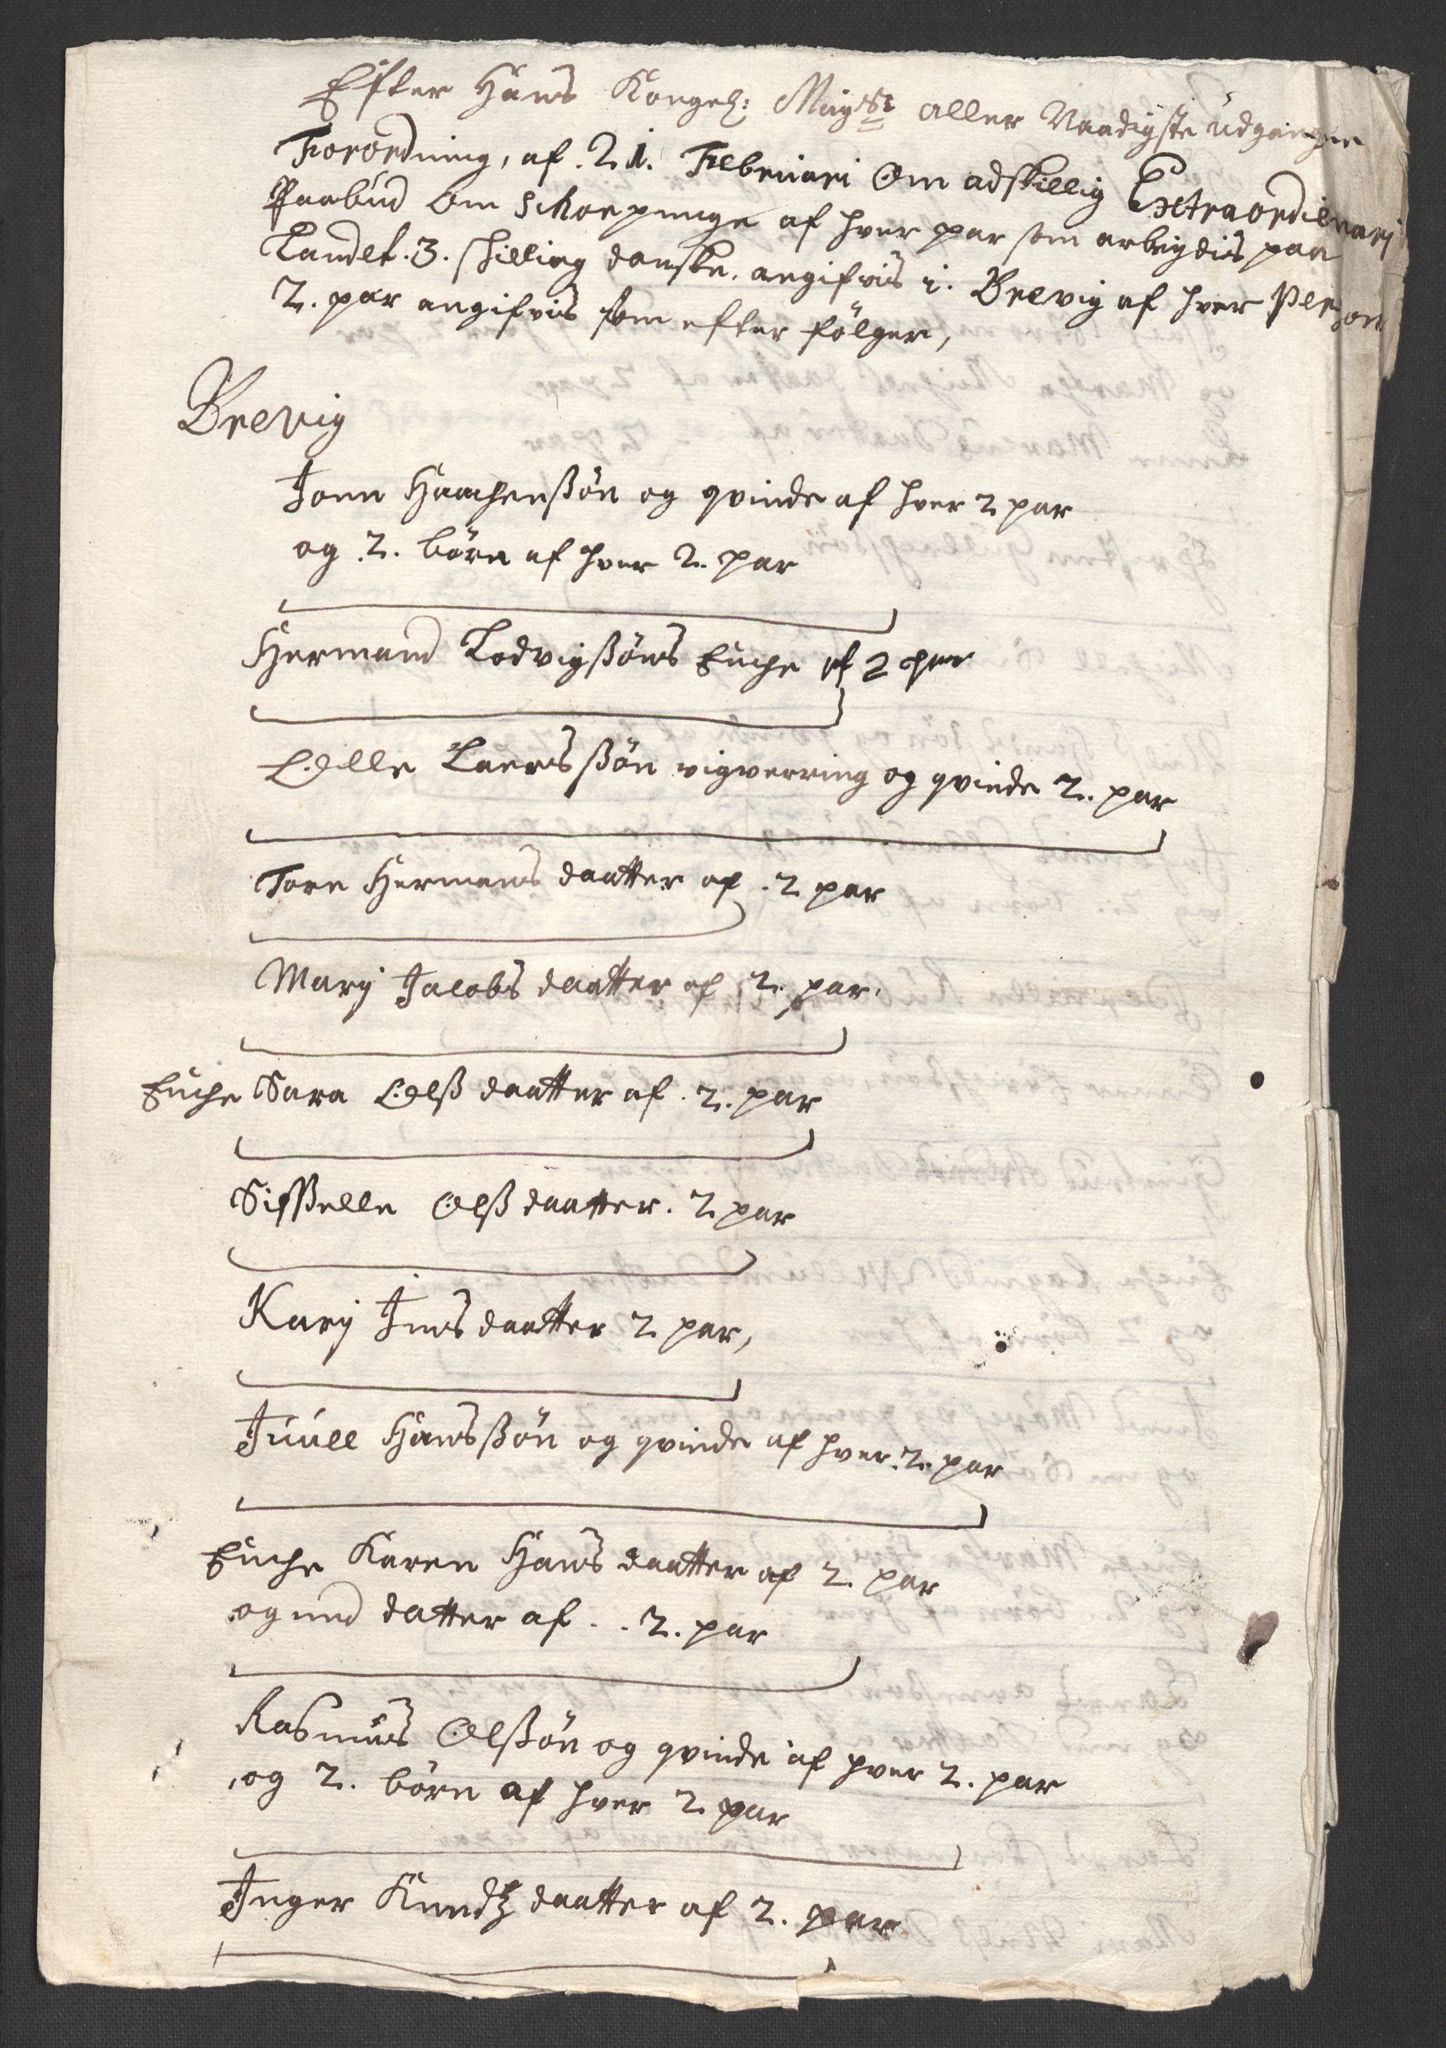 Efter Hans Kongel: Mayest: aller Naadigste udgangne
Forordning, af .21. Februari Om adskillig Extraordienarj
Paabud Om schoepunge af hver par som arbeydis paa
Landet .3. skilling danske. angifvis i. Brevig af hver Person
2. par angifvis som efter følger,
Brevig
Joen Haachenßøn og qvinde af hver 2 par
og 2. børn af hver 2. par
Hermand Lodvigßøns Enche af 2 par
Olle Laersßøn vigverring og qvinde 2. par
Tore Hermans daatter af .2 par
Mary Jacobs daatter af 2. par.
Enche Sara Olß daatter af .2. par
Sißelle Olß daatter. 2 par
Kary Jens daatter 2 par,
Juull Hansßøn og qvinde af hver .2. par
Enche Karen Hans daatter af 2. par
og med datter af .. 2. par
Rasmus Olßøn og qvinde af hver 2. par
og 2. børn af hver 2 par
Inger Knudtz daatter af 2. par